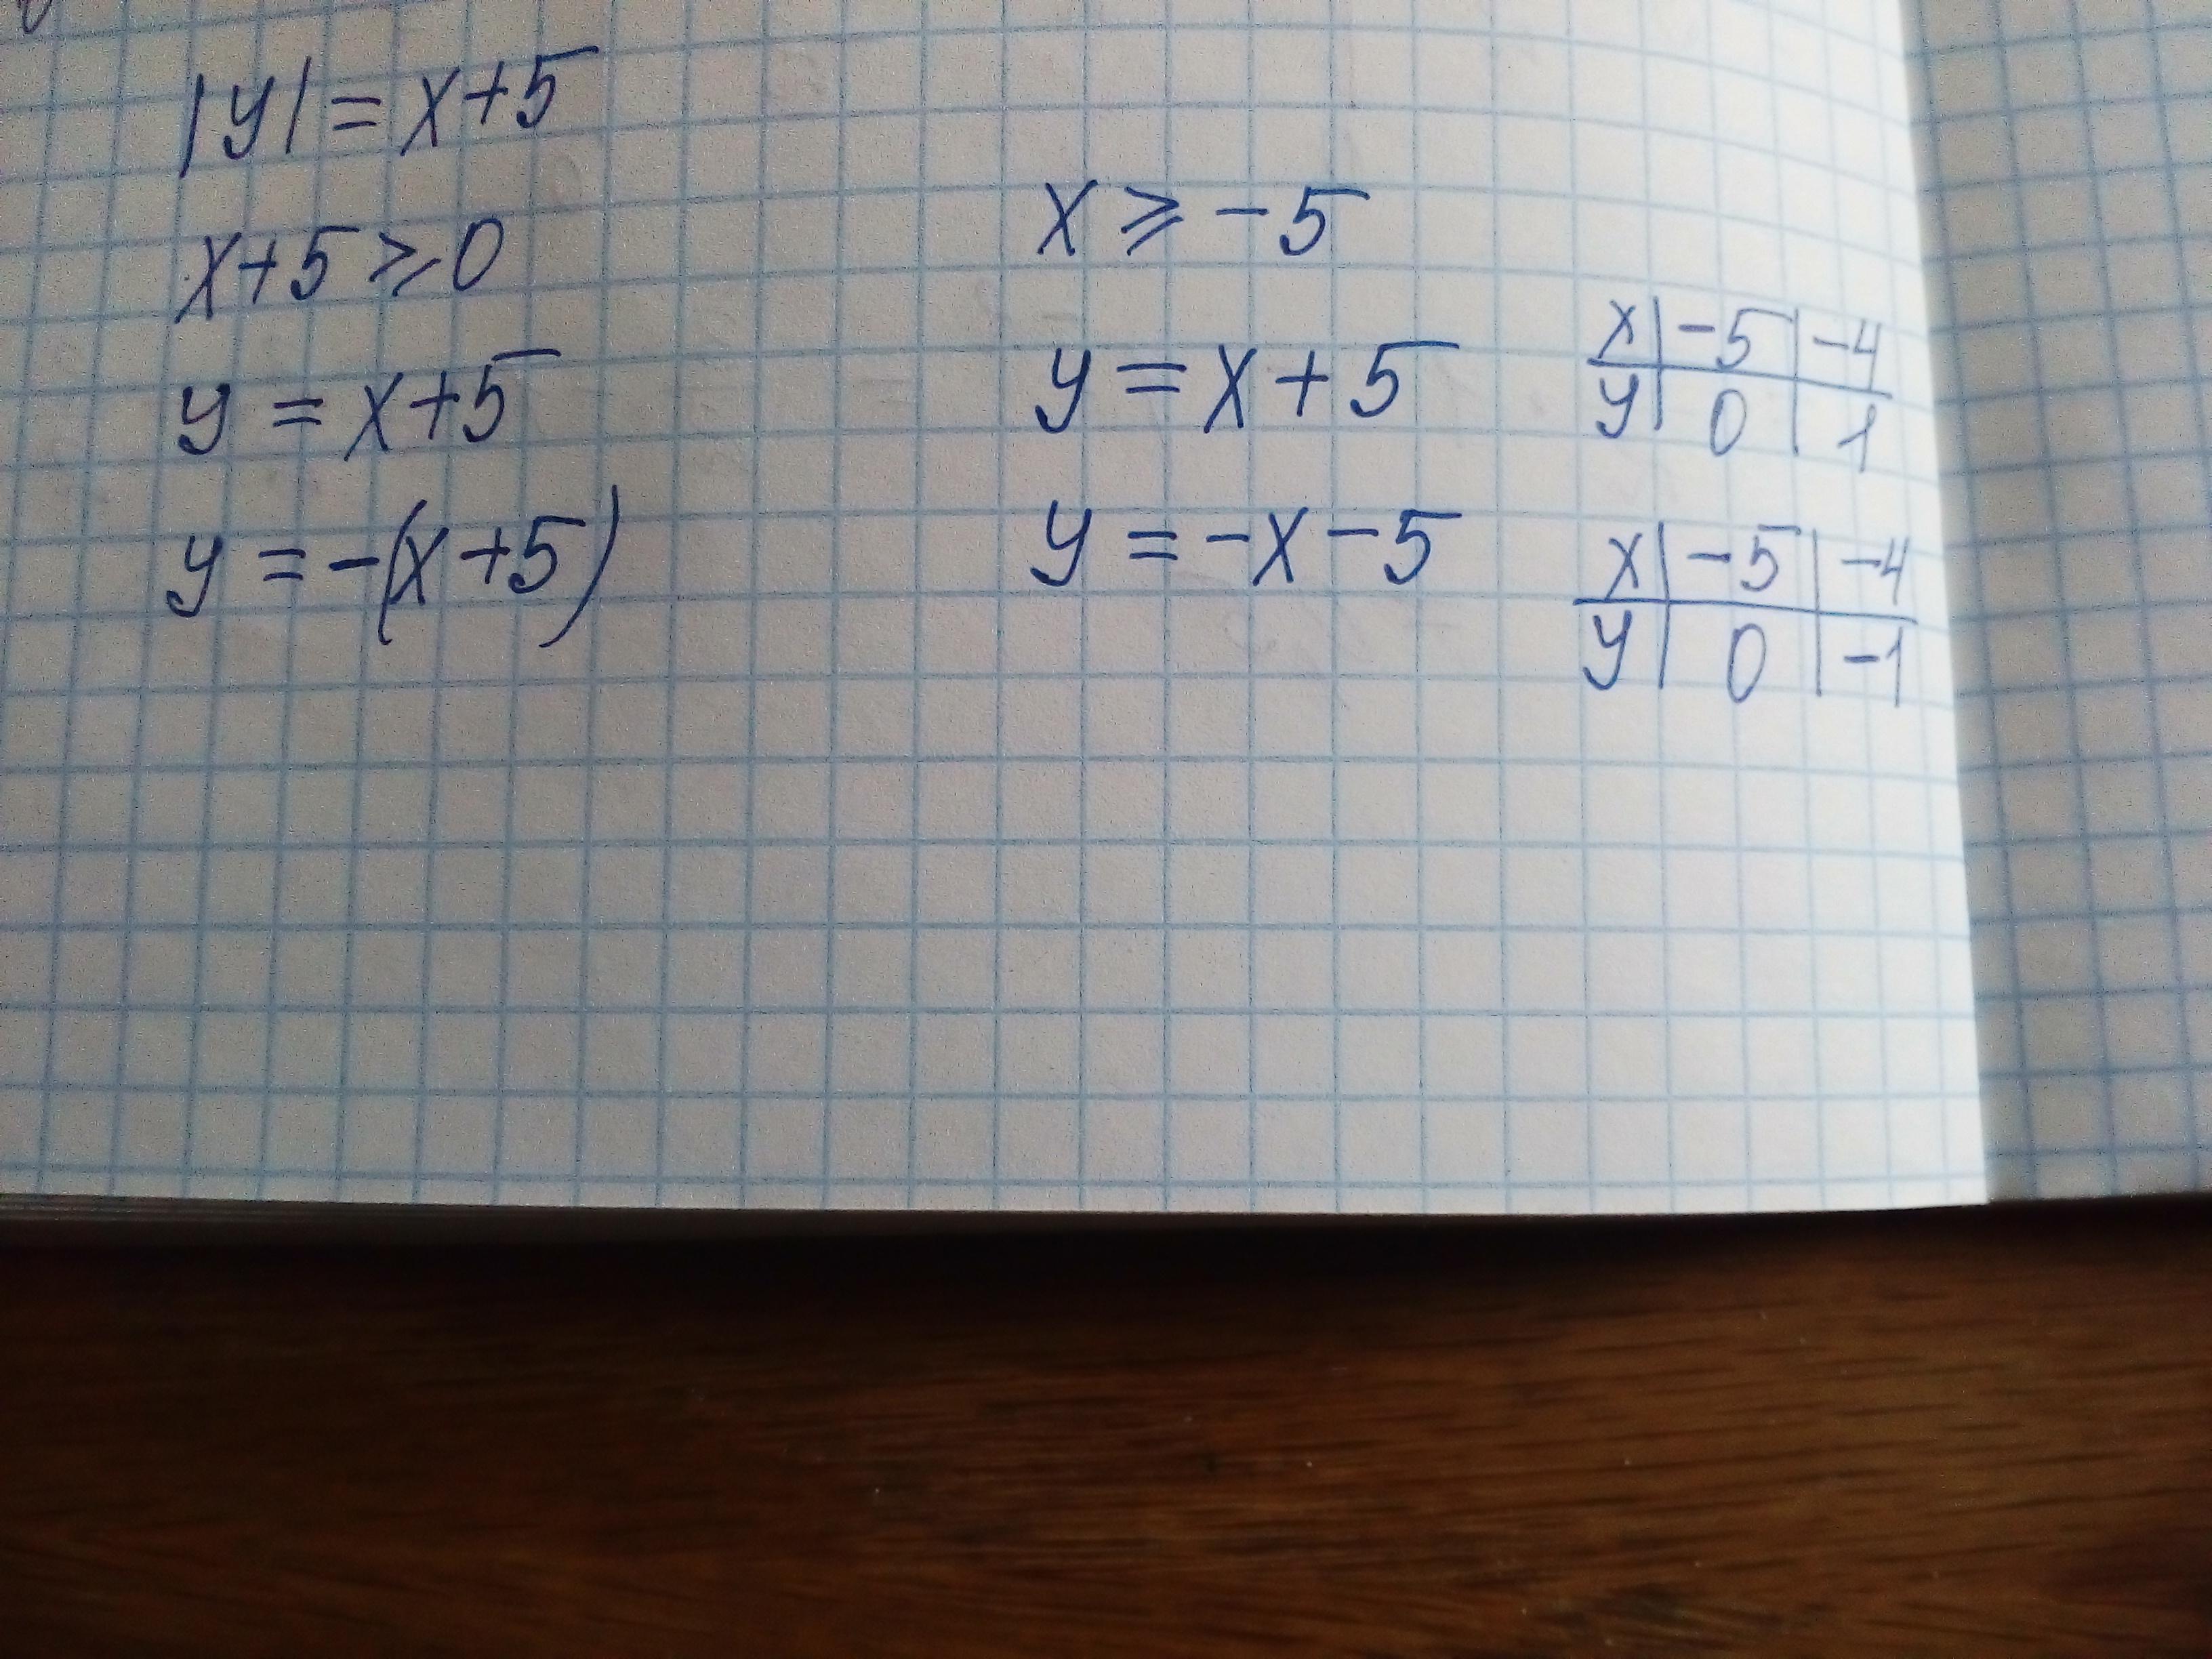 |y| = x+5
x+5 ⩾ 0
y = x+5
y = -(x+5)
x ⩾ -5
y = x+5
y = -x-5
x | -5 | -4
y | 0 | 1
x | -5 | -4
y | 0 | -1